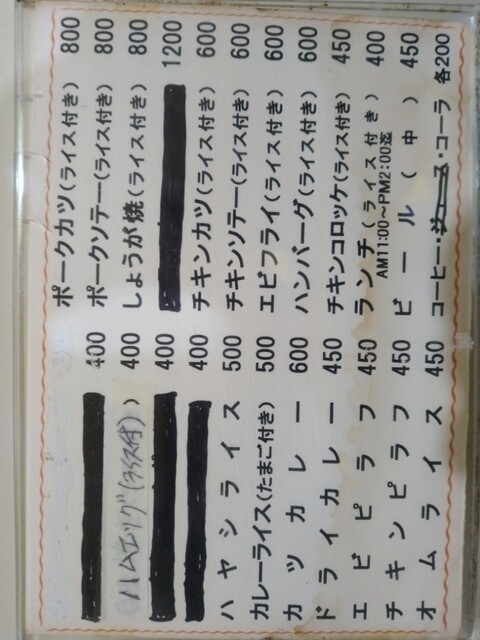 400
ハムエッグ(ライス付) 400
400
400
ハヤシライス 500
カレーライス(たまご付き) 500
カツカレー 600
ドライカレー 450
エビピラフ 450
チキンピラフ 450
オムライス 450
ポークカツ(ライス付き) 800
ポークソテー(ライス付き) 800
しょうが焼(ライス付き) 800
1200
チキンカツ(ライス付き) 600
チキンソテー(ライス付き) 600
エビフライ(ライス付き) 600
ハンバーグ(ライス付き) 600
チキンコロッケ(ライス付き) 450
ランチ(ライス付き) 400
AM11:00〜PM2:00迄
ビール(中) 450
コーヒー・・コーラ 各200